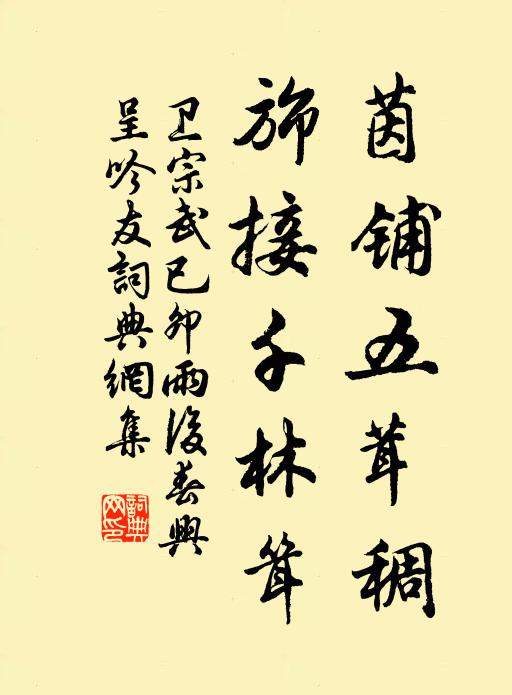 茵铺五茸稠
旆接千林耸
卫宗武己卯雨後春興
呈吟友詞典網集
詞典网印